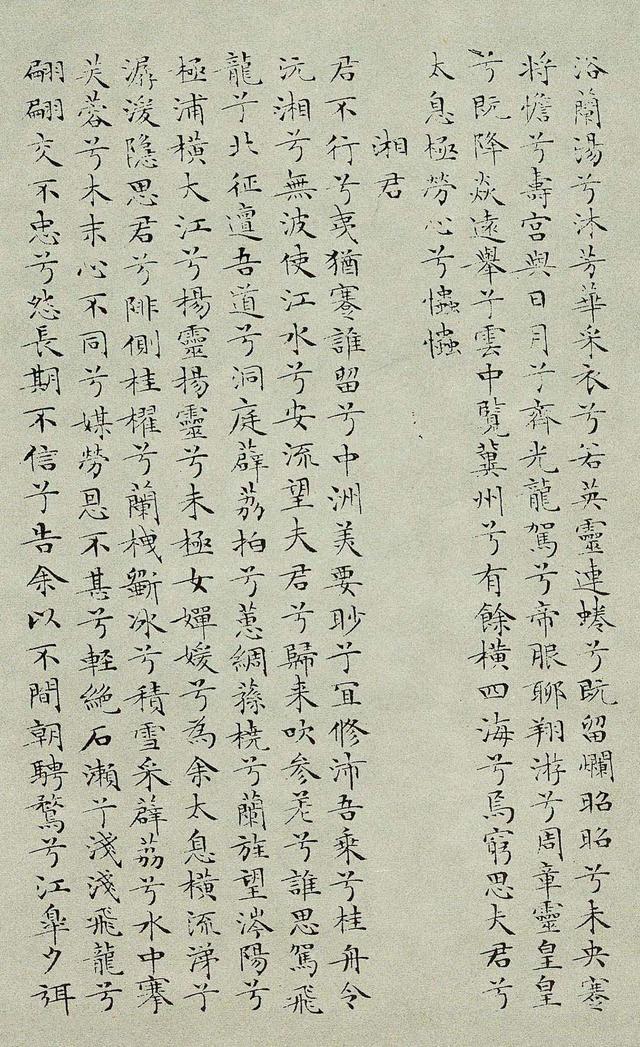 浴蘭湯兮沐芳華采衣兮若英靈連蜷兮既留爛昭昭兮未央蹇
将憺兮壽宮與日月兮齊光龍駕兮帝服聊翔游兮周章靈皇皇
兮既降焱遠舉兮雲中覽冀州兮有餘橫四海兮焉窮思夫君兮
太息極勞心兮忡忡
湘君
君不行兮夷猶蹇誰留兮中洲美要眇兮宜修沛吾乘兮桂舟令
沅湘兮無波使江水兮安流望夫君兮歸來吹參差兮誰思駕飛
龍兮北征邅吾道兮洞庭薜荔拍兮蕙綢蓀橈兮蘭旌望涔陽兮
極浦橫大江兮揚靈揚靈兮未極女嬋媛兮為余太息橫流涕兮
潺湲隱思君兮陫側桂櫂兮蘭枻斲冰兮積雪采薜荔兮水中搴
芙蓉兮木末心不同兮媒勞恩不甚兮輕絶石瀨兮淺淺飛龍兮
翩翩交不忠兮怨長期不信兮告余以不閒朝騁騖兮江皋夕弭